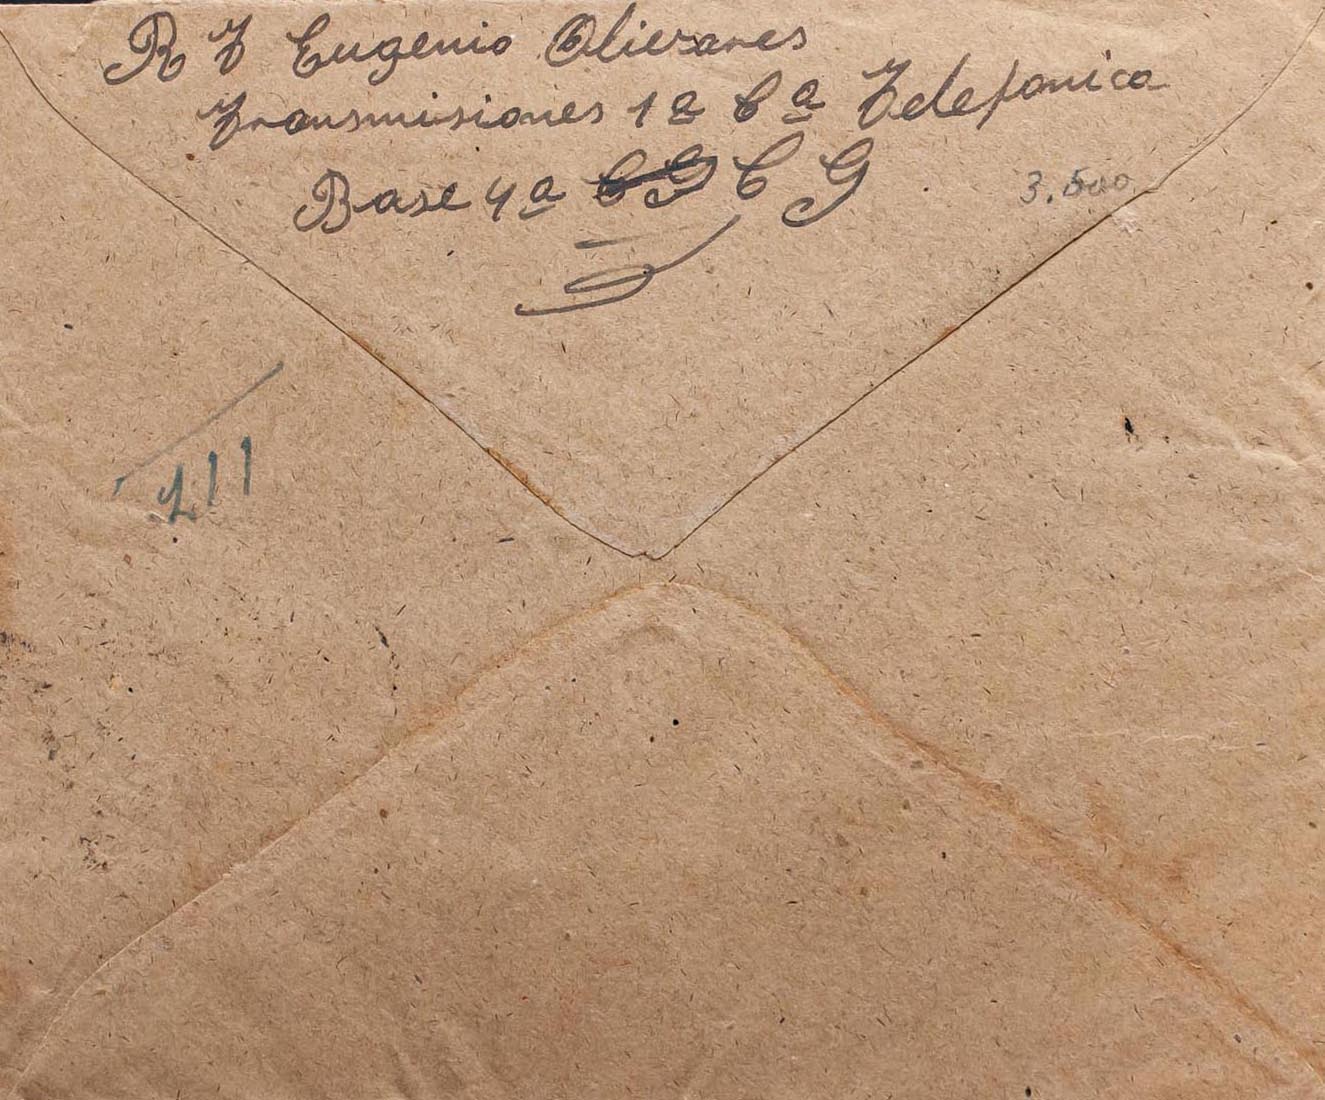 R T Eugenio Olivares
Transmisiones 1ª Cª Telefonica
Base 4ª C G C G
3.500
211